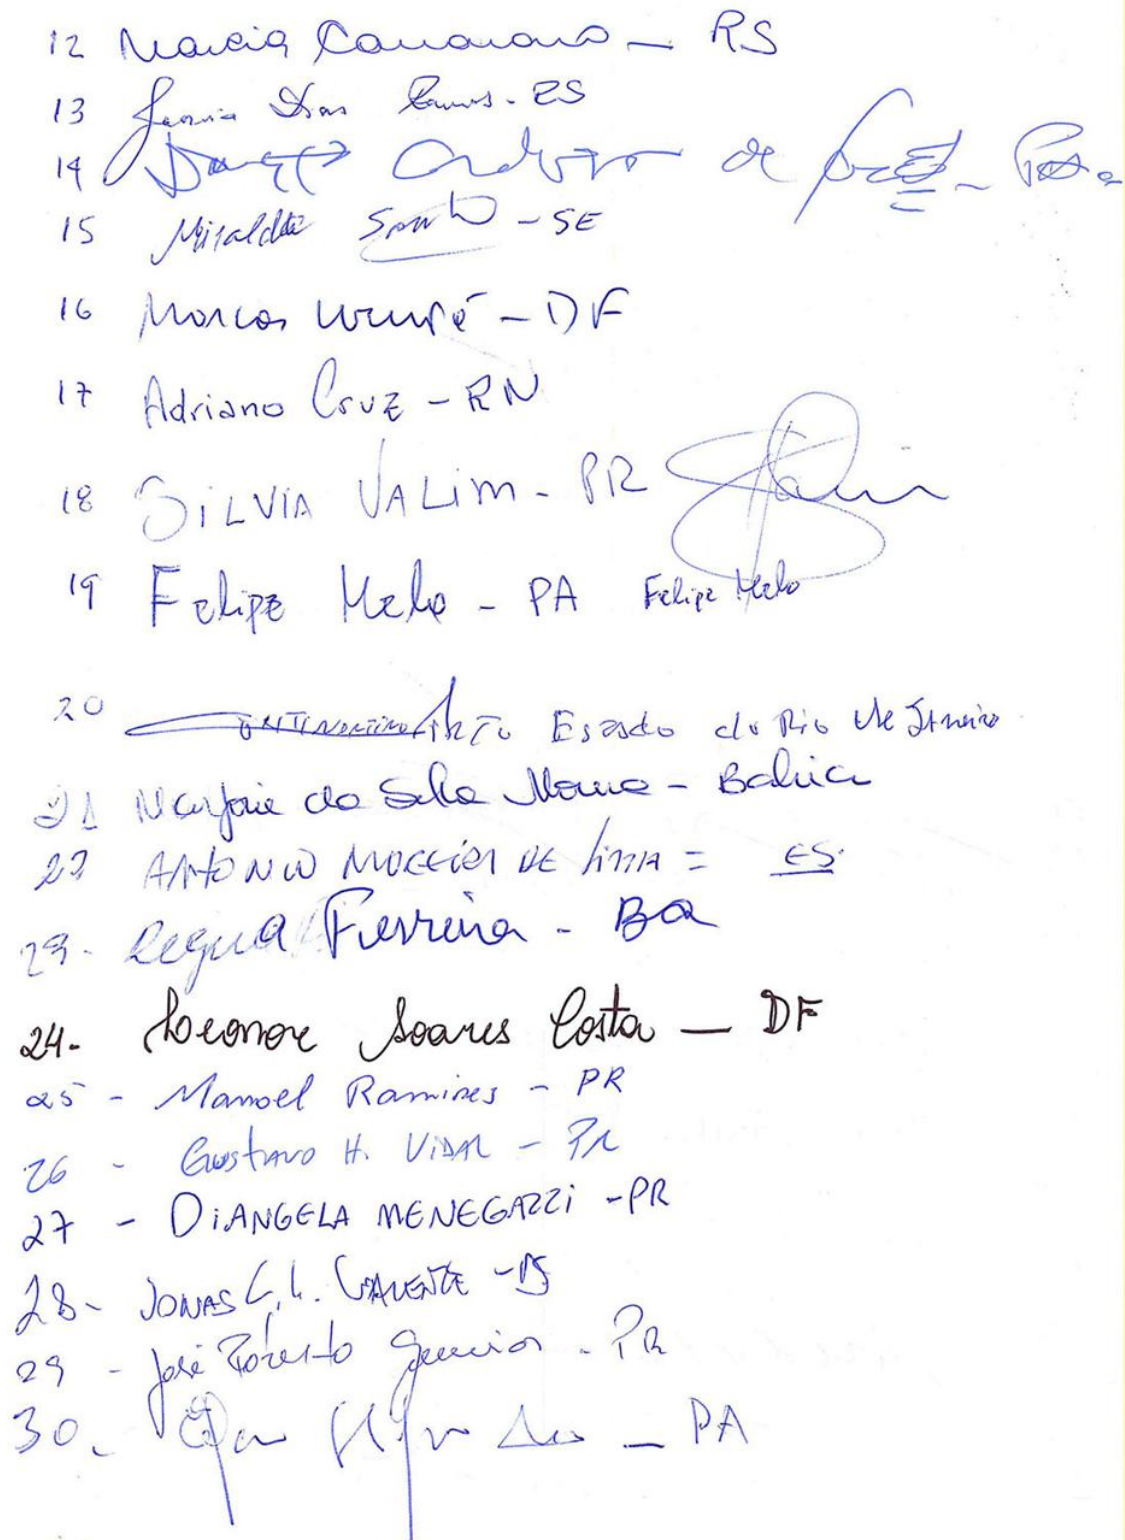 12 Marcia Camarano - RS
13 Dias Ramos - ES
14 de
15 Miralda Santo - SE
16 Marcos Urupá - DF
17 Adriano Cruz - RN
18 SiLVIA VALIM - PR
19 Felipe Melo - PA Felipe Melo
20 Estado do Rio de Janeiro
21 da Silva Moura - Bahia
22 ANTONIO DE LIMA = ES
23 - Ferreira - Ba
24 - Leonor Soares Costa - DF
25 - Manoel Ramires - PR
26 - Gustavo H. VIDAL - PR
27 - DiANGELA MENEGAZZi - PR
28 - JONAS C. L. VALENTE -
29 - José Roberto - PR
30 - PA